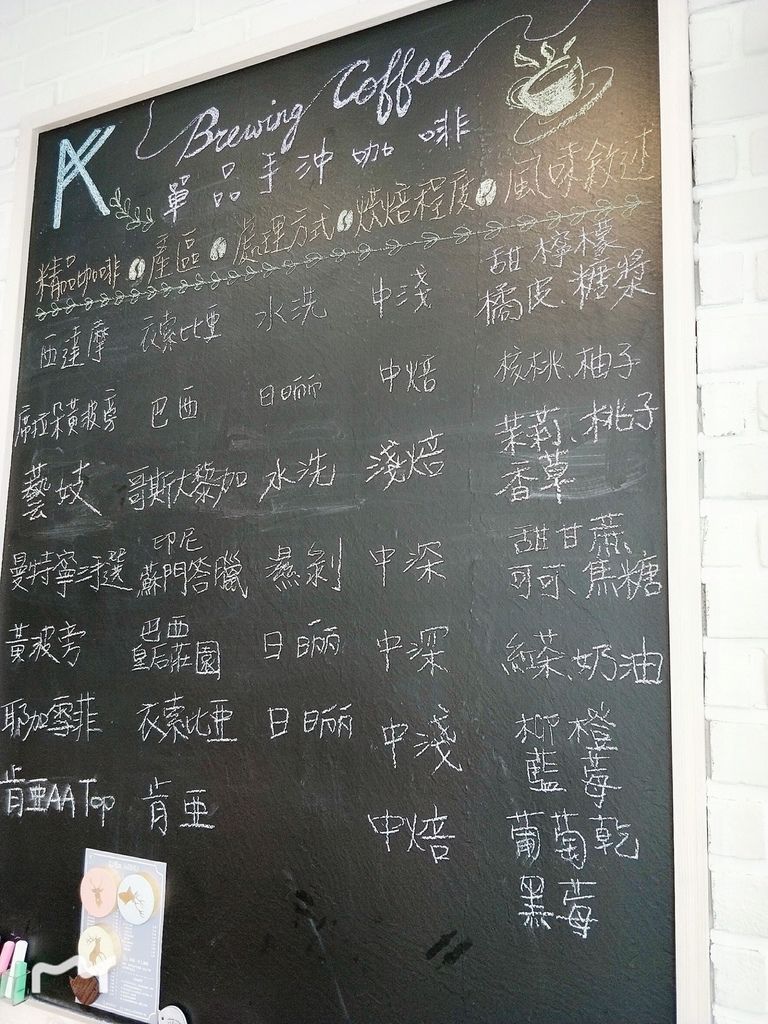 AK Brewing Coffee
單品手沖咖啡
精品咖啡 產區 處理方式 烘焙程度 風味敘述
西達摩 衣索比亞 水洗 中淺 甜檸檬
橘皮、糖漿
席拉朵黃波旁 巴西 日晒 中焙 核桃、柚子
藝妓 哥斯大黎加 水洗 淺焙 茉莉、桃子
香草
曼特寧手選 印尼
蘇門答臘 濕剝 中深 甜甘蔗、
可可、焦糖
黃波旁 巴西
皇后莊園 日晒 中深 紅茶、奶油
耶加雪菲 衣索比亞 日晒 中淺 柳橙
藍莓
肯亞AA Top 肯亞 中焙 葡萄乾
黑莓